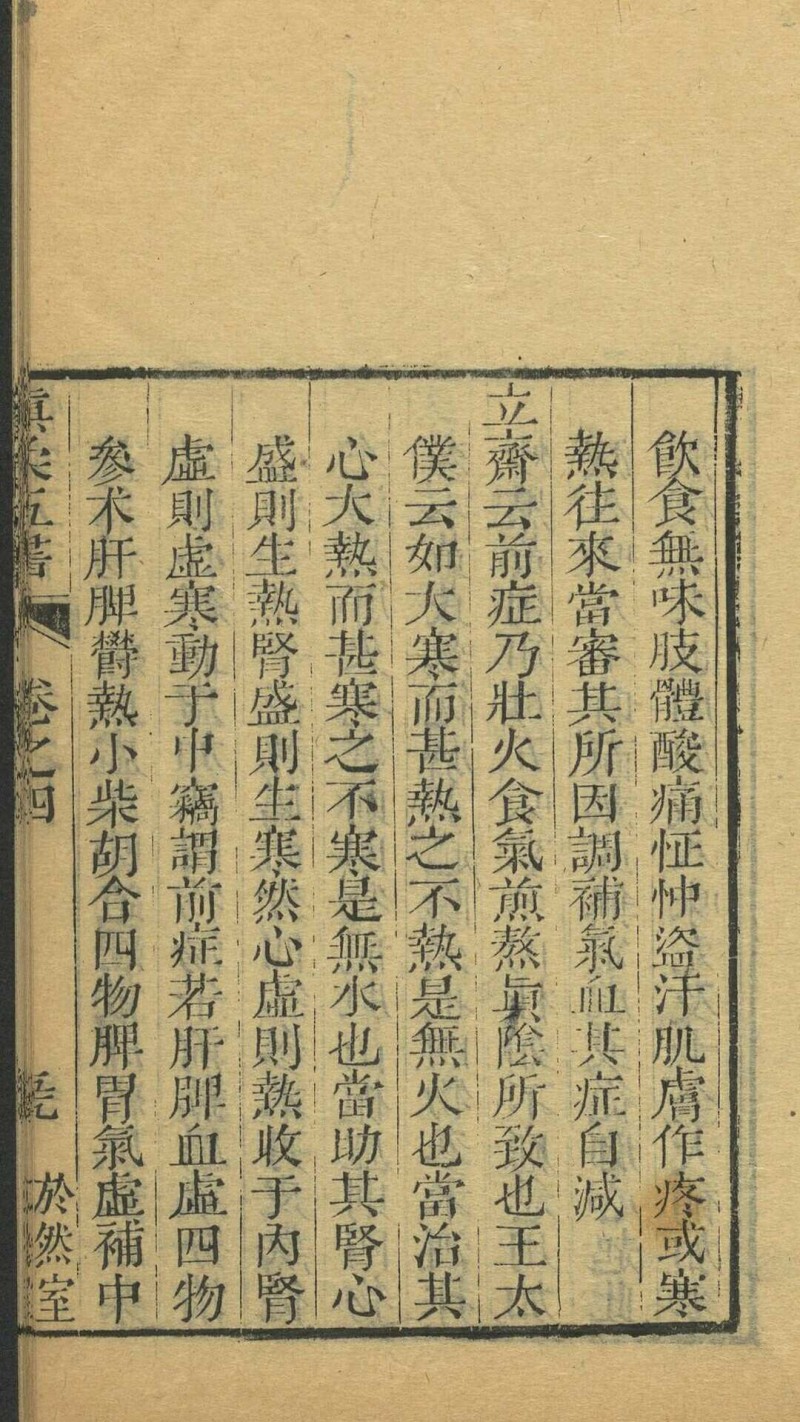 飲食無味肢體酸痛怔忡盜汗肌膚作疼或寒
熱往來當審其所因調補氣血其症自減
立齋云前症乃壯火食氣煎熬眞陰所致也王太
僕云如大寒而甚熱之不熱是無火也當治其
心大熱而甚寒之不寒是無水也當助其腎心
盛則生熱腎盛則生寒然心虛則熱收于內腎
虛則虛寒動于中竊謂前症若肝脾血虛四物
參术肝脾欎熱小柴胡合四物脾胃氣虛補中
卷之四
於然室